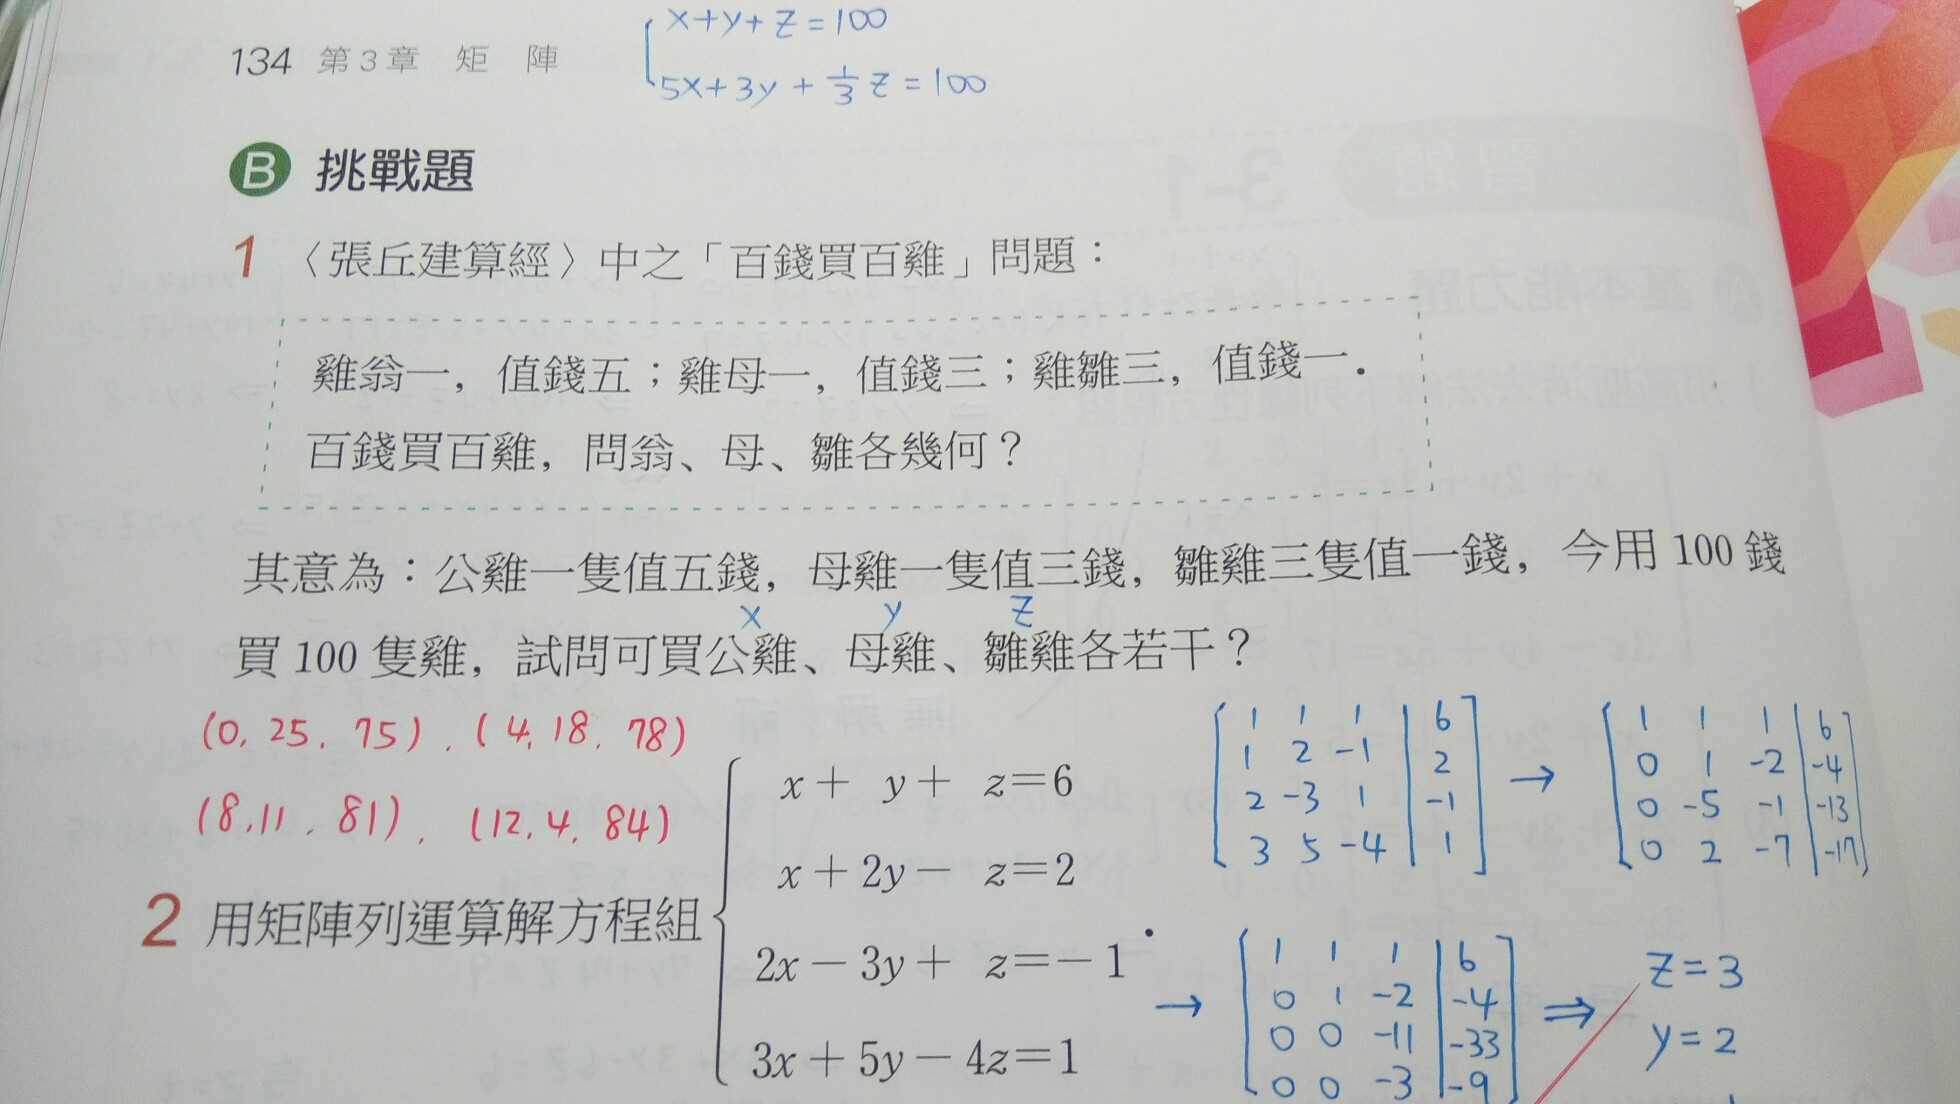 134 第3章 矩 陣
x+y+z=100
5x+3y+1/3z=100
B 挑戰題
1 〈張丘建算經〉中之「百錢買百雞」問題：
雞翁一，值錢五；雞母一，值錢三；雞雛三，值錢一．
百錢買百雞，問翁、母、雛各幾何？
其意為：公雞一隻值五錢，母雞一隻值三錢，雛雞三隻值一錢，今用100錢
x y z
買100隻雞，試問可買公雞、母雞、雛雞各若干？
(0, 25, 75), (4, 18, 78)
(8, 11, 81), (12, 4, 84)
2 用矩陣列運算解方程組
x+ y+ z=6
x+2y- z=2
2x-3y+ z=-1
3x+5y-4z=1
1 1 1 | 6
1 2 -1 | 2
2 -3 1 | -1
3 5 -4 | 1
→
1 1 1 | 6
0 1 -2 | -4
0 -5 -1 | -13
0 2 -7 | -17
→
1 1 1 | 6
0 1 -2 | -4
0 0 -11 | -33
0 0 -3 | -9
⇒
z=3
y=2